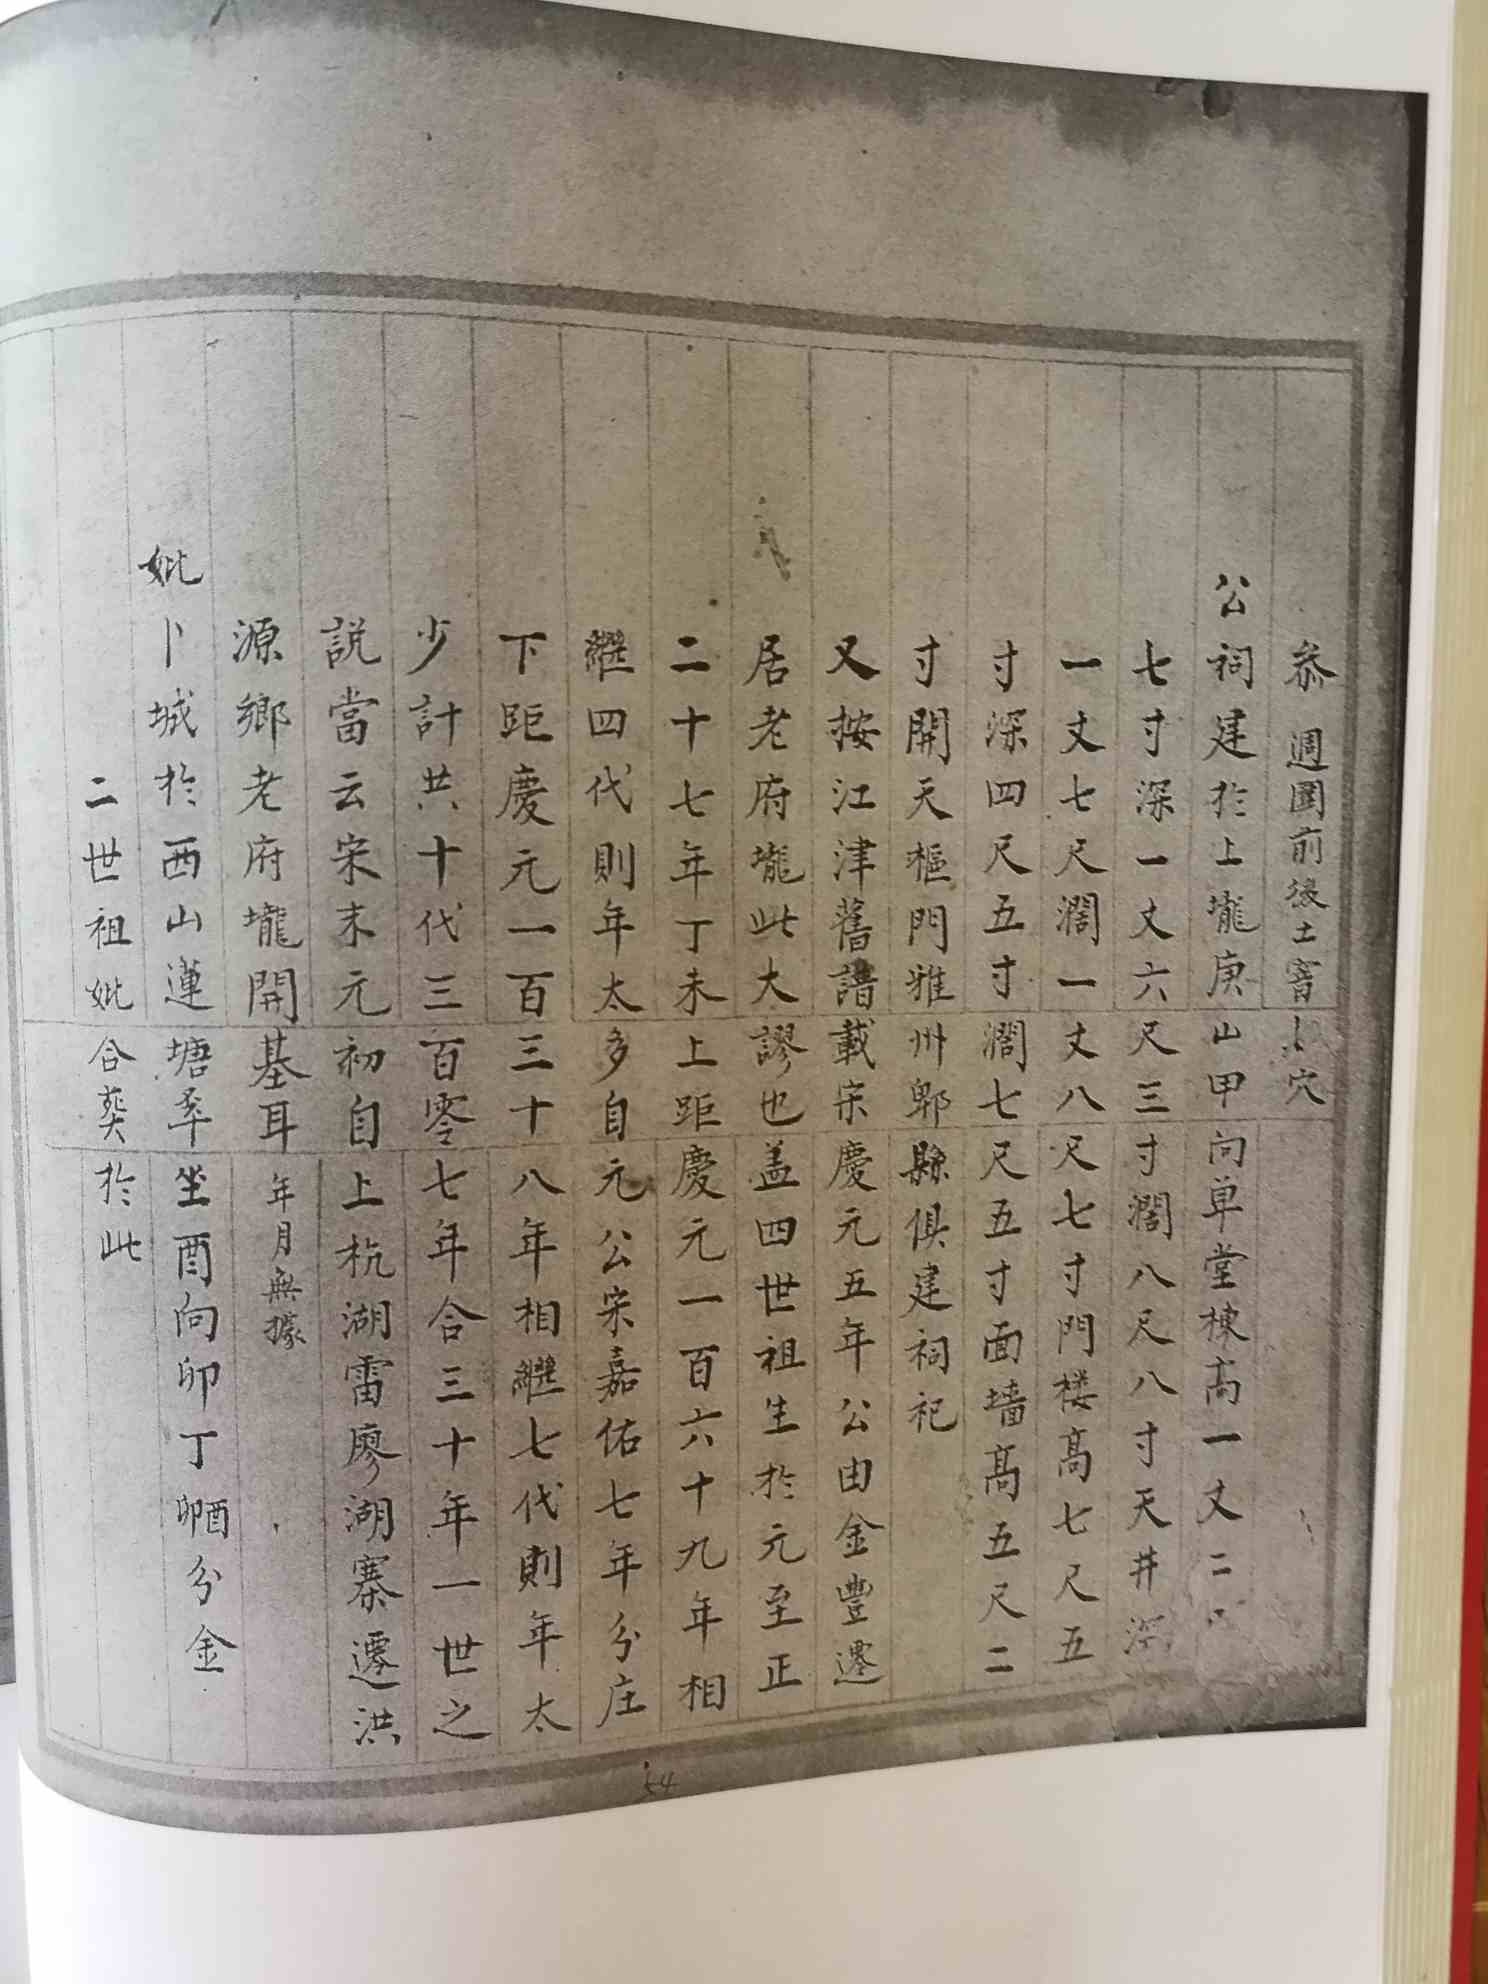 叅 週圍前後士窨卜穴
公祠建於上壠庚山甲向单堂棟高一丈二
七寸深一丈六尺三寸濶八尺八寸天井深
一丈七尺濶一丈八尺七寸門楼高七尺五
寸深四尺五寸濶七尺五寸面墙高五尺二
寸開天樞門雅州郫縣俱建祠祀
又按江津舊譜載宋慶元五年公由金豐遷
居老府壠此大謬也盖四世祖生於元至正
二十七年丁未上距慶元一百六十九年相
繼四代則年太多自元公宋嘉佑七年分庄
下距慶元一百三十八年相繼七代則年太
少計共十代三百零七年合三十年一世之
説當云宋末元初自上杭湖雷廖湖寨遷洪
源鄉老府壠開基耳 年月無據
妣卜城於西山蓮塘庵坐酉向卯丁卯酉分金
二世祖妣合葬於此
54